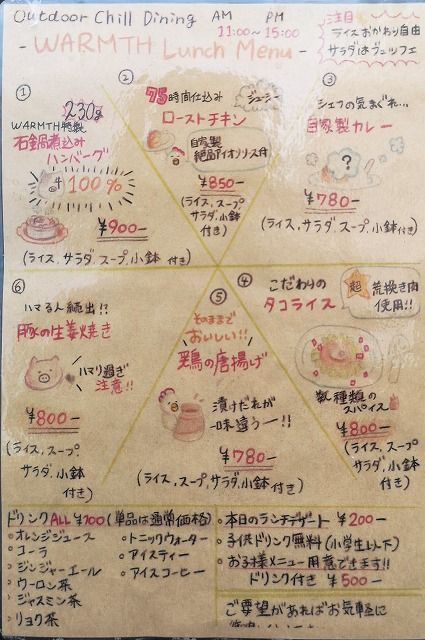 Outdoor Chill Dining AM PM
11:00~15:00
- WARMTH Lunch Menu -
注目
ライスおかわり自由
サラダはブュッフェ
①
230g
WARMTH特製
石鍋煮込み
ハンバーグ
牛100%
¥900-
(ライス、サラダ、スープ、小鉢付き)
②
75時間仕込み
ジューシー
ローストチキン
自家製
絶品アイオリソース付
¥850-
(ライス、スープ
サラダ、小鉢
付き)
③
シェフの気まぐれ…
自家製カレー
?
¥780-
(ライス、サラダ
スープ、小鉢付き)
④
こだわりの
タコライス
超
荒挽き肉
使用!!
数種類の
スパイス
¥800-
(ライス、スープ
サラダ、小鉢
付き)
⑤
そのままで
おいしい!!
鶏の唐揚げ
漬けだれが
一味違うー!!
¥780-
(ライス、スープ、サラダ、小鉢付き)
⑥
ハマる人続出!?
豚の生姜焼き
ハマり過ぎ
注意!!
¥800-
(ライス、スープ、
サラダ、小鉢
付き)
ドリンクALL¥100(単品は通常価格)
・オレンジジュース
・コーラ
・ジンジャーエール
・ウーロン茶
・ジャスミン茶
・リョク茶
・トニックウォーター
・アイスティー
・アイスコーヒー
・本日のランチデザート ¥200-
・子供ドリンク無料(小学生以下)
・お子様メニュー用意できます!!
ドリンク付き ¥500-
ご要望があればお気軽に